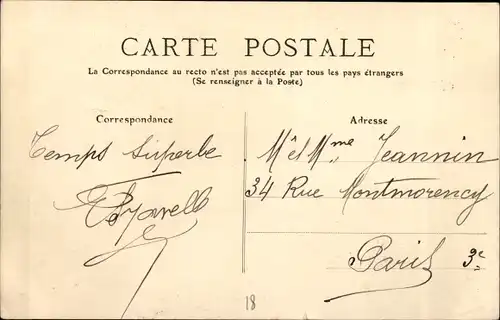 CARTE POSTALE
La Correspondance au recto n'est pas acceptée par tous les pays étrangers
(Se renseigner à la Poste)
Correspondance
Temps Superbe
Adresse
M et Mme Jeannin
34 Rue Montmorency
Paris 3e
18